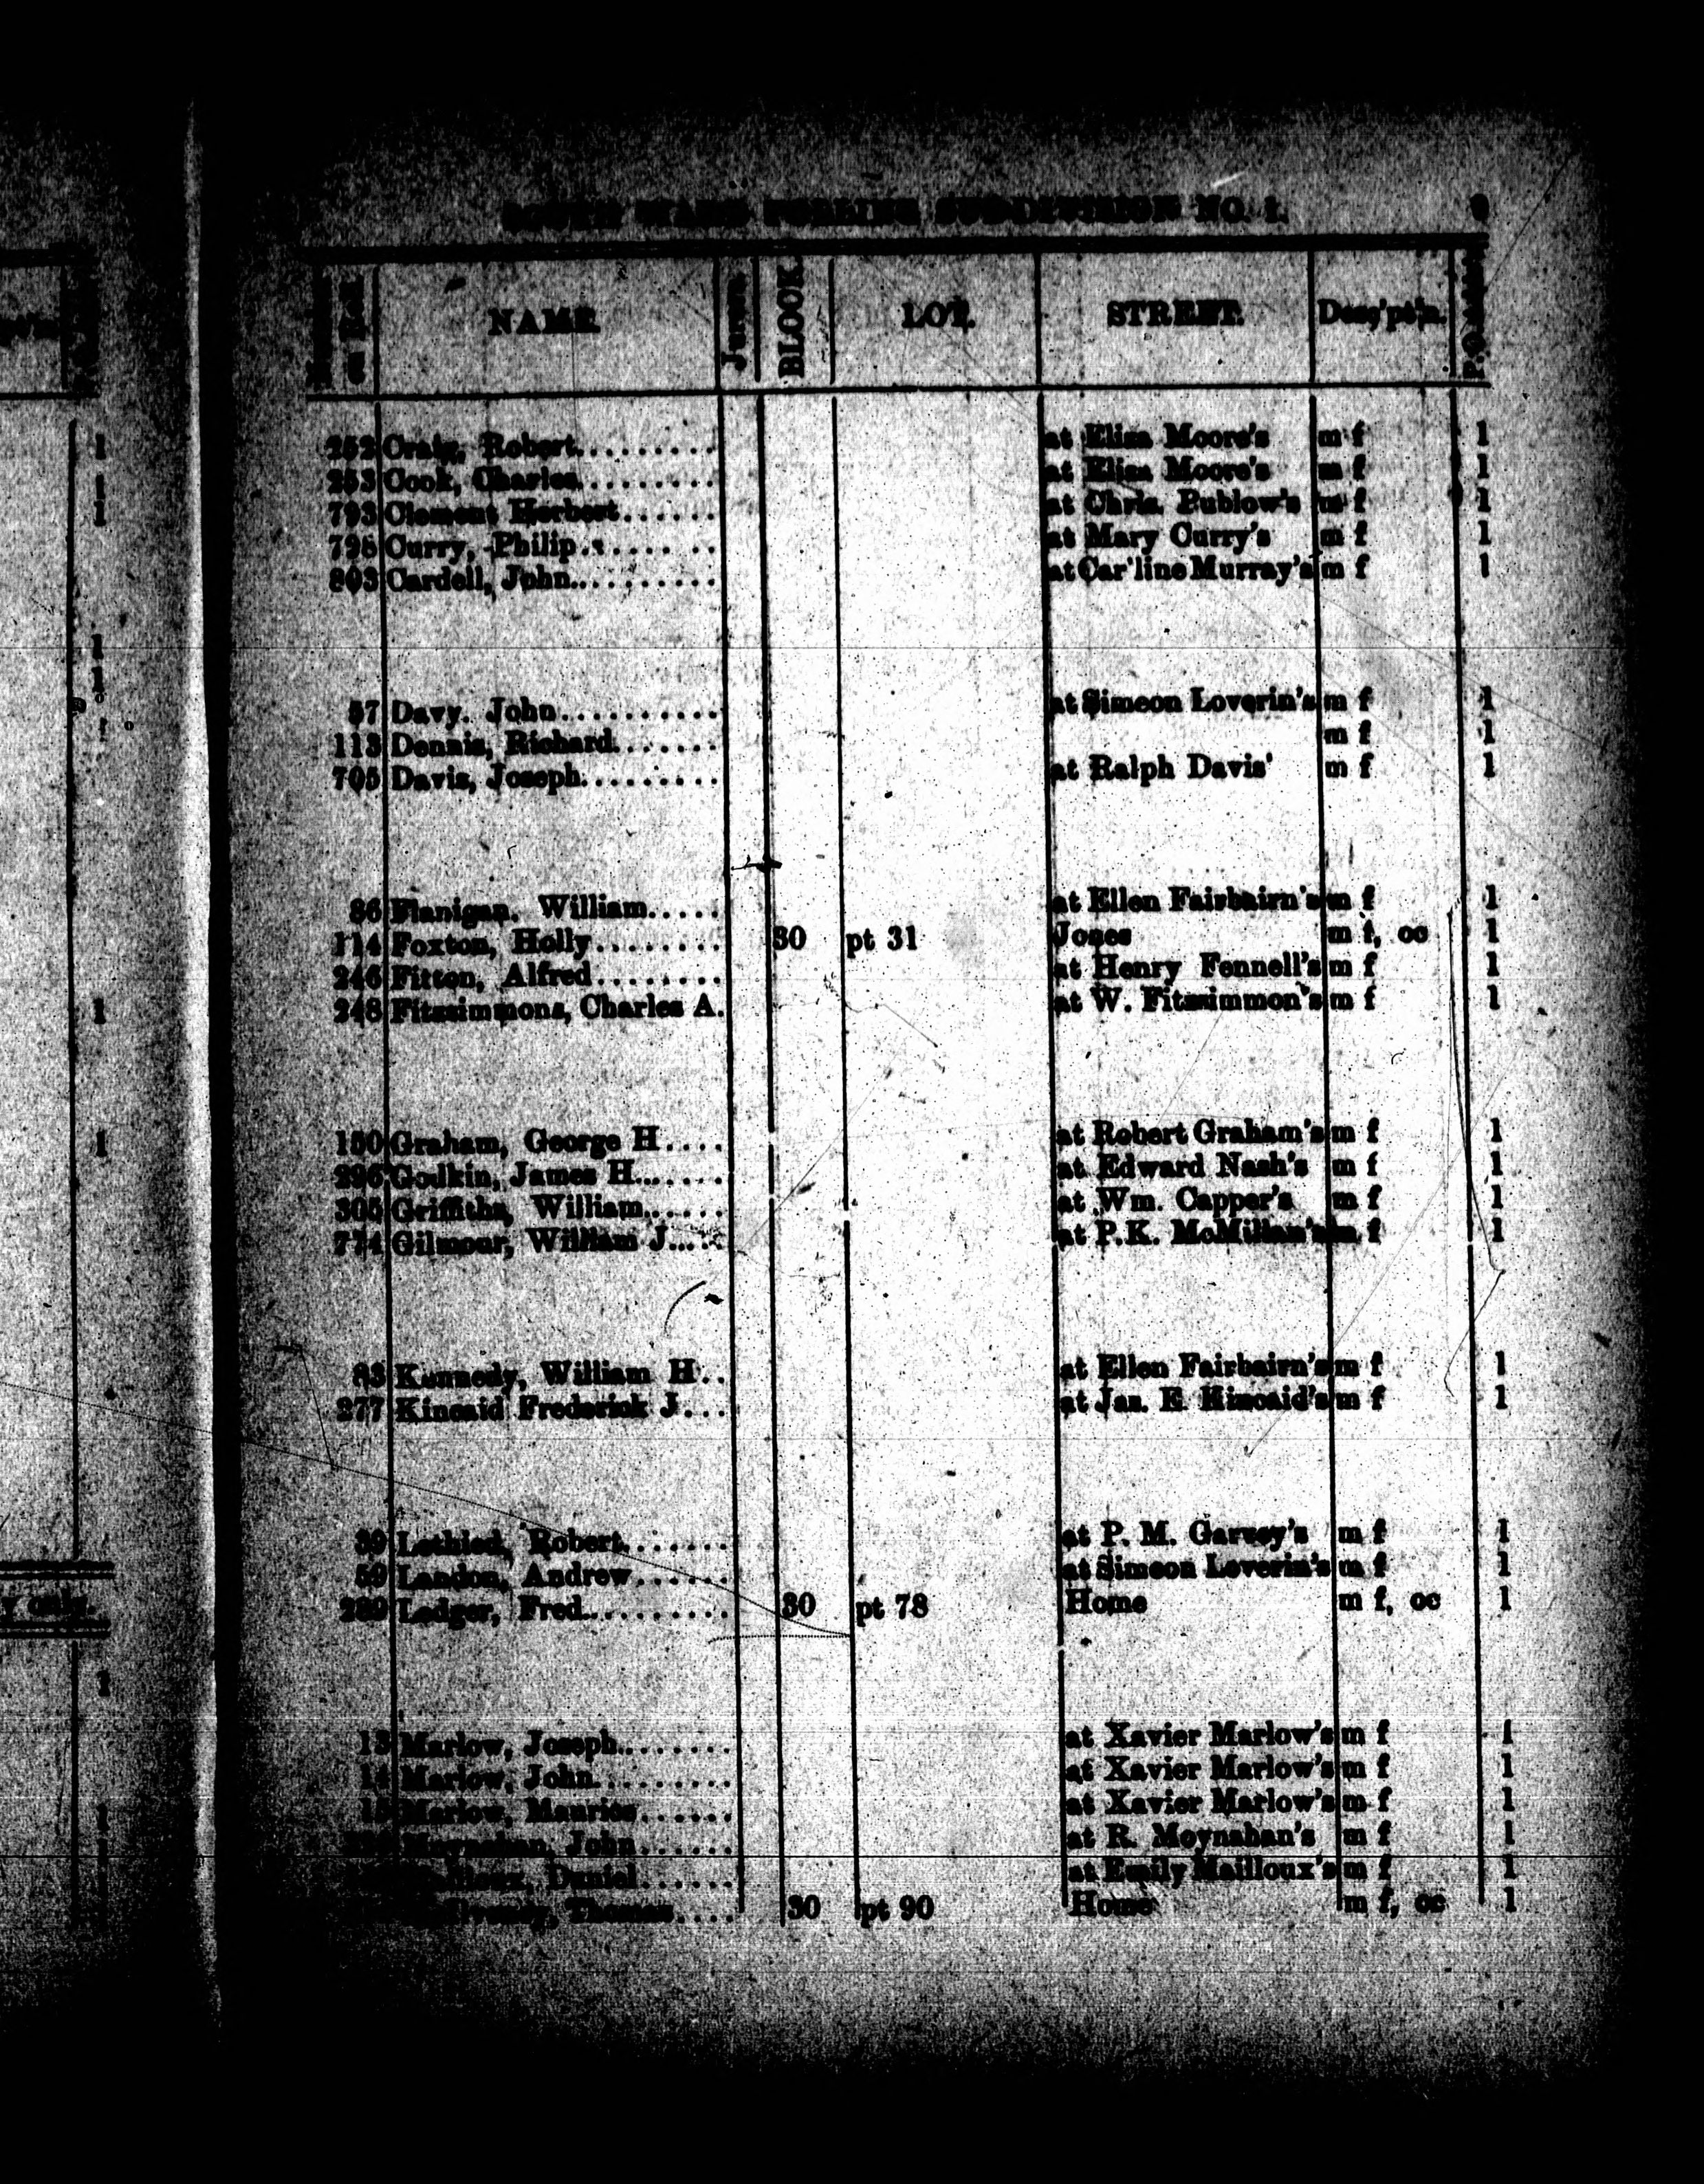 SOUTH WARD POLLING SUB-DIVISION NO. 1. 9
on Roll NAME. Jurors. BLOCK. LOT. STREET. Desc'pt'n. P.O. Address
252 Craig, Robert......... at Eliza Moore's m f 1
253 Cook, Charles......... at Eliza Moore's m f 1
793 Clement Herbert...... at Chris. Publow's m f 1
798 Curry, Philip......... at Mary Curry's m f 1
803 Cardell, John......... at Car'line Murray's m f 1
57 Davy. John.......... at Simeon Loverin's m f 1
113 Dennis, Richard....... m f 1
705 Davis, Joseph......... at Ralph Davis' m f 1
86 Flanigan, William..... at Ellen Fairbairn's m f 1
114 Foxton, Holly........ 30 pt 31 Jones m f, oc 1
246 Fitton, Alfred........ at Henry Fennell's m f 1
248 Fitzsimmons, Charles A. at W. Fitzsimmon's m f 1
150 Graham, George H.... at Robert Graham's m f 1
296 Godkin, James H...... at Edward Nash's m f 1
305 Griffiths, William..... at Wm. Capper's m f 1
774 Gilmour, William J.... at P.K. McMillan's m f 1
83 Kennedy, William H.. at Ellen Fairbairn's m f 1
277 Kincaid Frederick J... at Jas. E. Kincaid's m f 1
39 Robert....... at P. M. Garvey's m f 1
59 Landon, Andrew...... at Simeon Loverin's m f 1
289 Ledger, Fred.......... 30 pt 78 Home m f, oc 1
13 Marlow, Joseph....... at Xavier Marlow's m f 1
14 Marlow, John......... at Xavier Marlow's m f 1
15 Marlow, Maurice...... at Xavier Marlow's m f 1
Moynahan, John...... at R. Moynahan's m f 1
Mailloux, Daniel...... at Emily Mailloux's m f 1
Thomas.... 30 pt 90 Home m f, oc 1